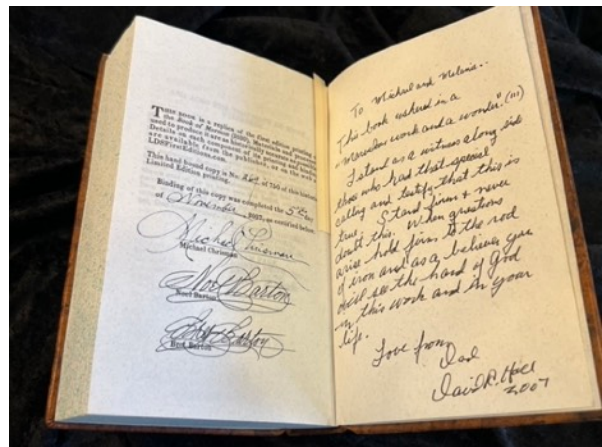 THIS BOOK is a replica of the first edition printing of
the Book of Mormon
used to produce it are as historically accurate as possible.
Details on each component of its process and binding
are available from the publisher, or on the web at
LDSFirstEditions.com.
This hand bound copy is No. of 750 of this historic
Limited Edition printing.
Binding of this copy was completed the 5th day
of November, 2007, as certified below.
Michael Chrisman
Noel Barton
Noel Barton
Bret Barton
To Michael and Melanie..
This book ushered in a
"marvelous work and a wonder."
I stand as a witness along side
those who had that special
calling and testify that this is
true. Stand firm & never
doubt this. When questions
arise hold firm to the rod
of iron and as a believer you
will see the hand of God
in this work and in your
life.
Love from
Dad
David R. Hall
2007